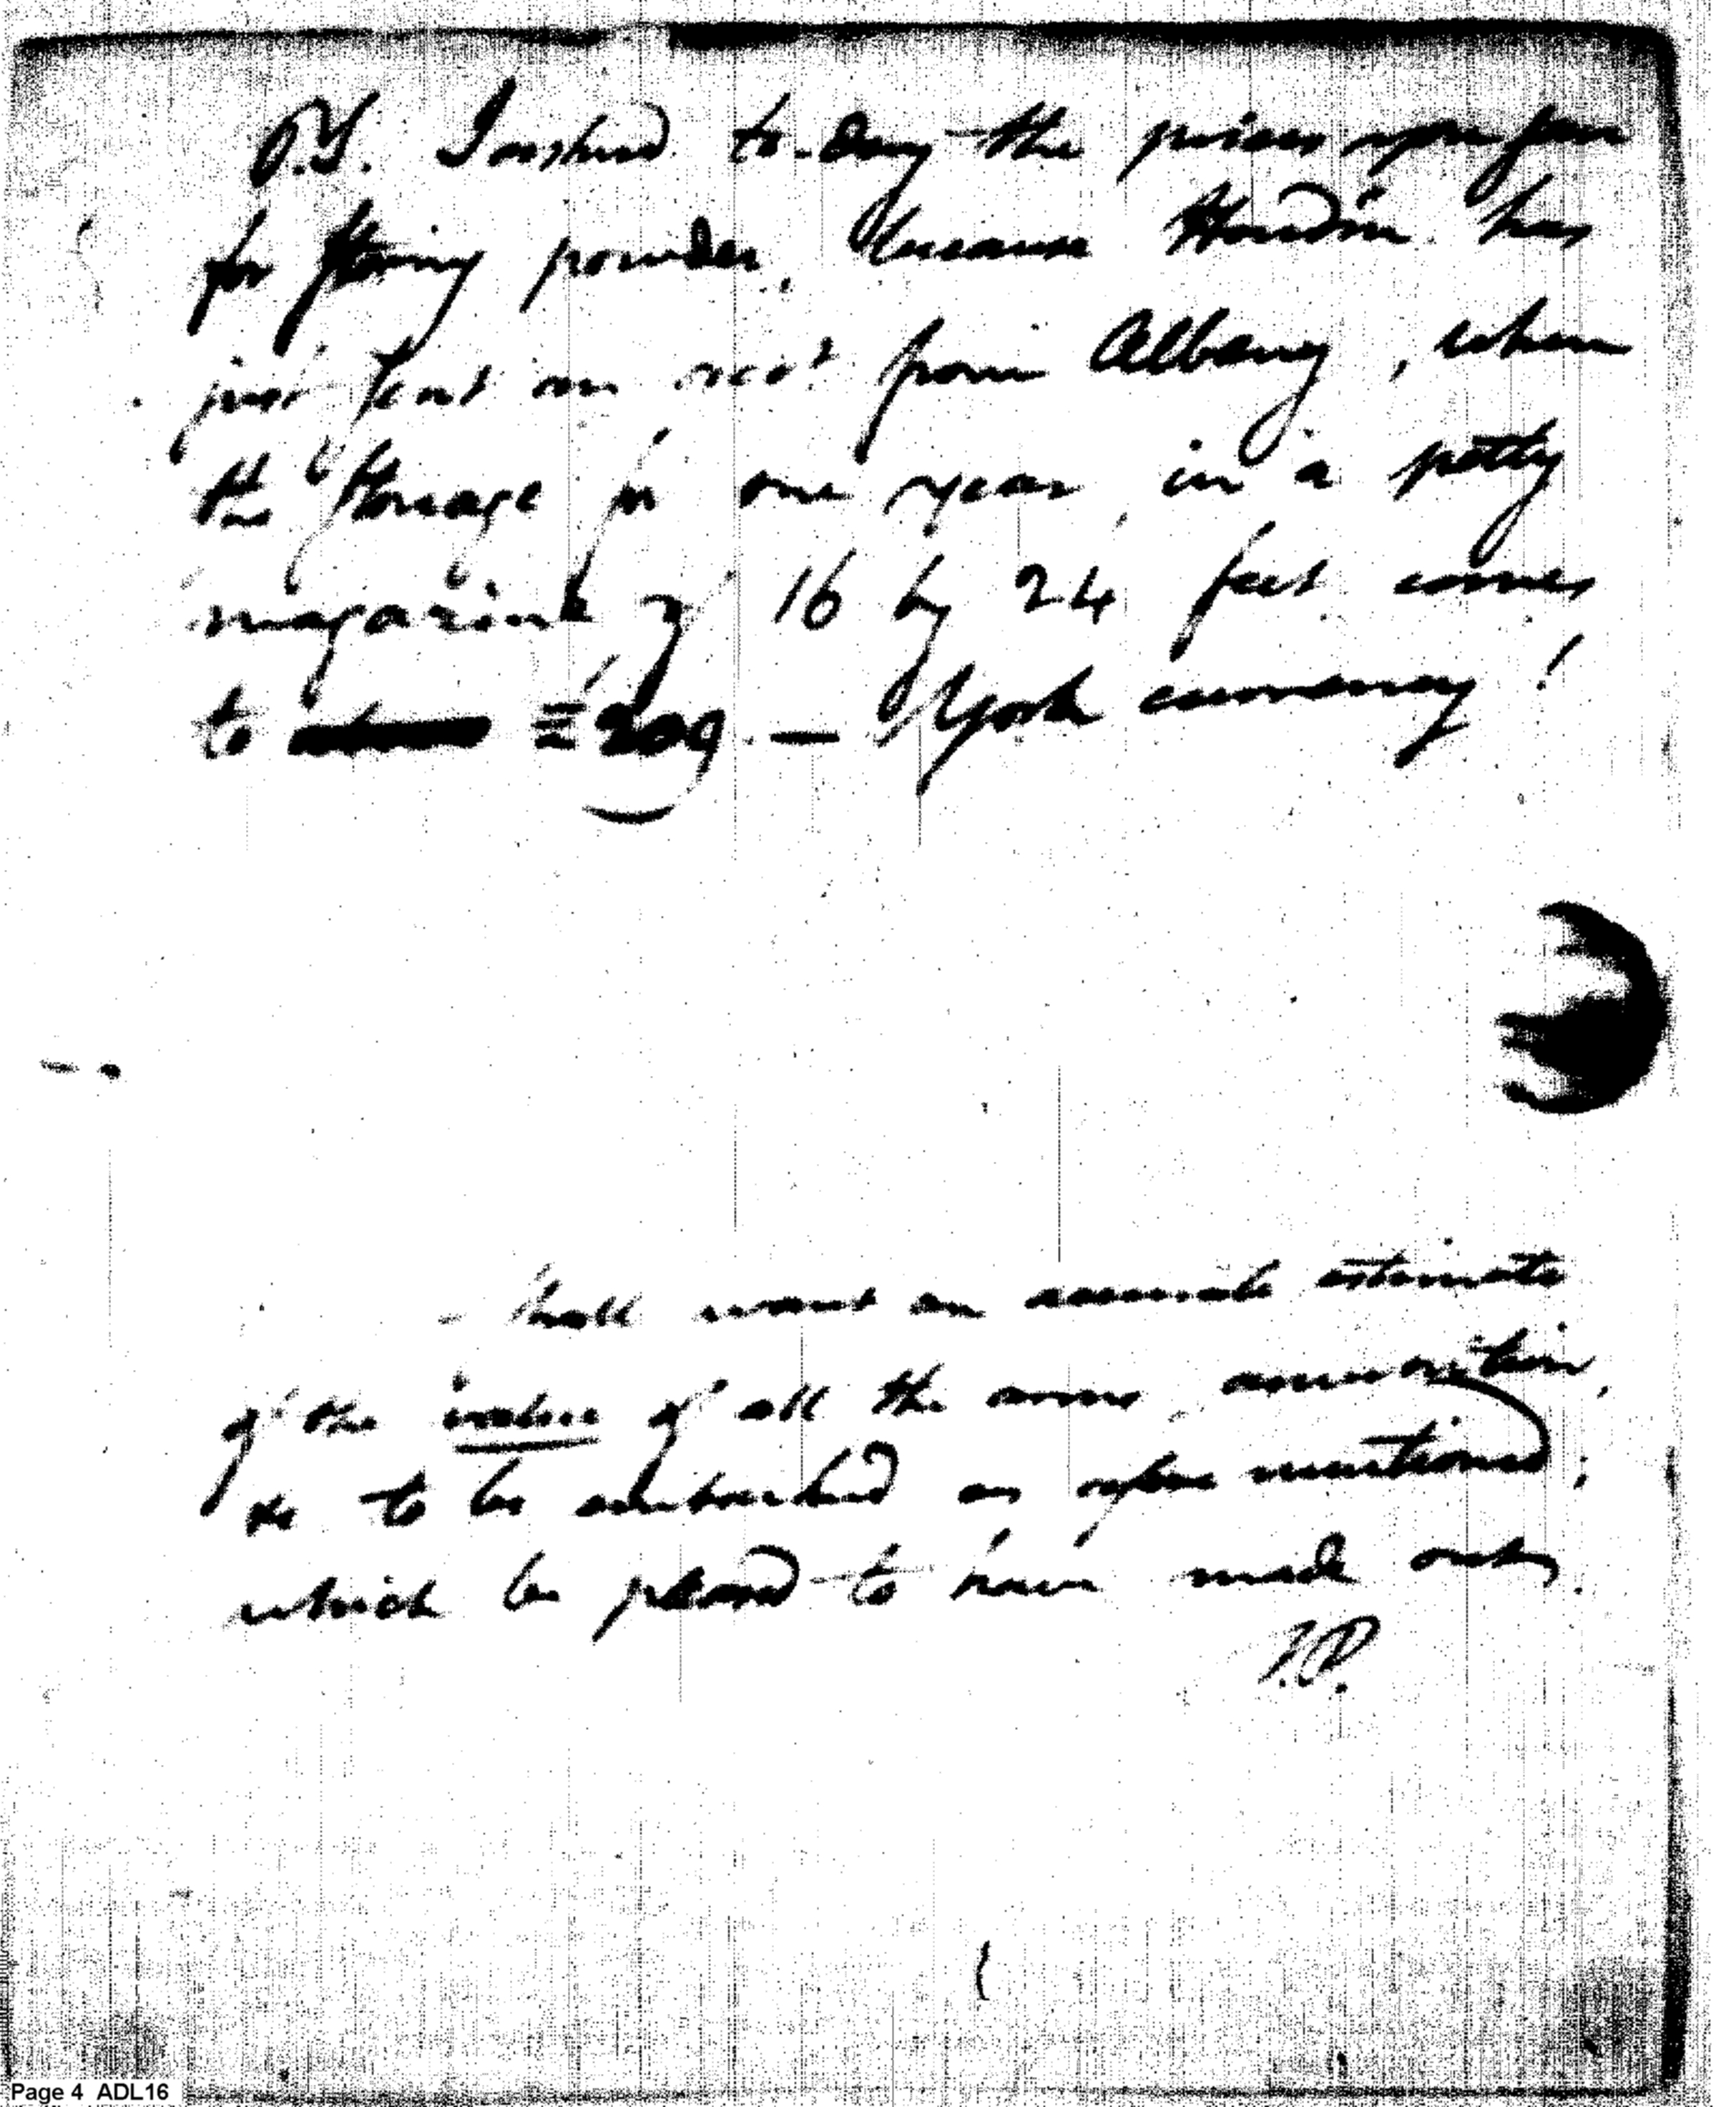 P.S. I wished to-day the prices you pay
for storing powder, because Hondin has
just sent an acct from Albany, when
the storage for one year, in a petty
magazine of 16 by 24 feet comes
to £209 — York currency!
Shall want an accurate estimate
of the value of all the arms, ammunition,
&c to be embarked as before mentioned;
which be pleased to have made out.
J.D.
Page 4 ADL16